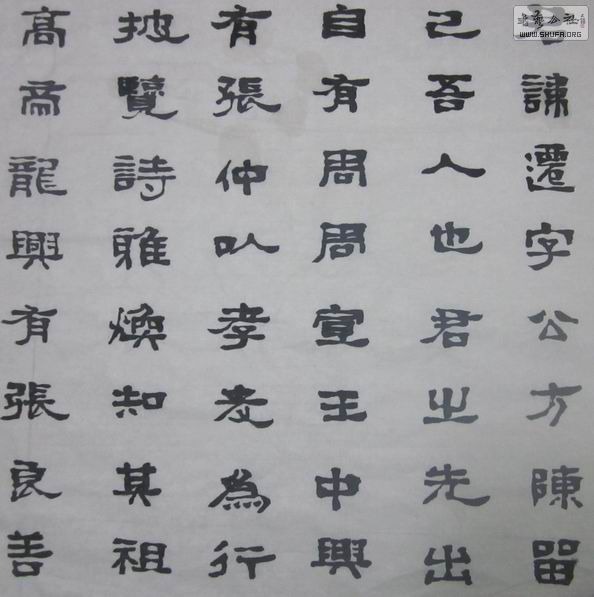 諱遷字公方陳留
己吾人也君之先出
自有周周宣王中興
有張仲以孝友為行
披覽詩雅煥知其祖
高帝龍興有張良善
WWW.SHUFA.ORG